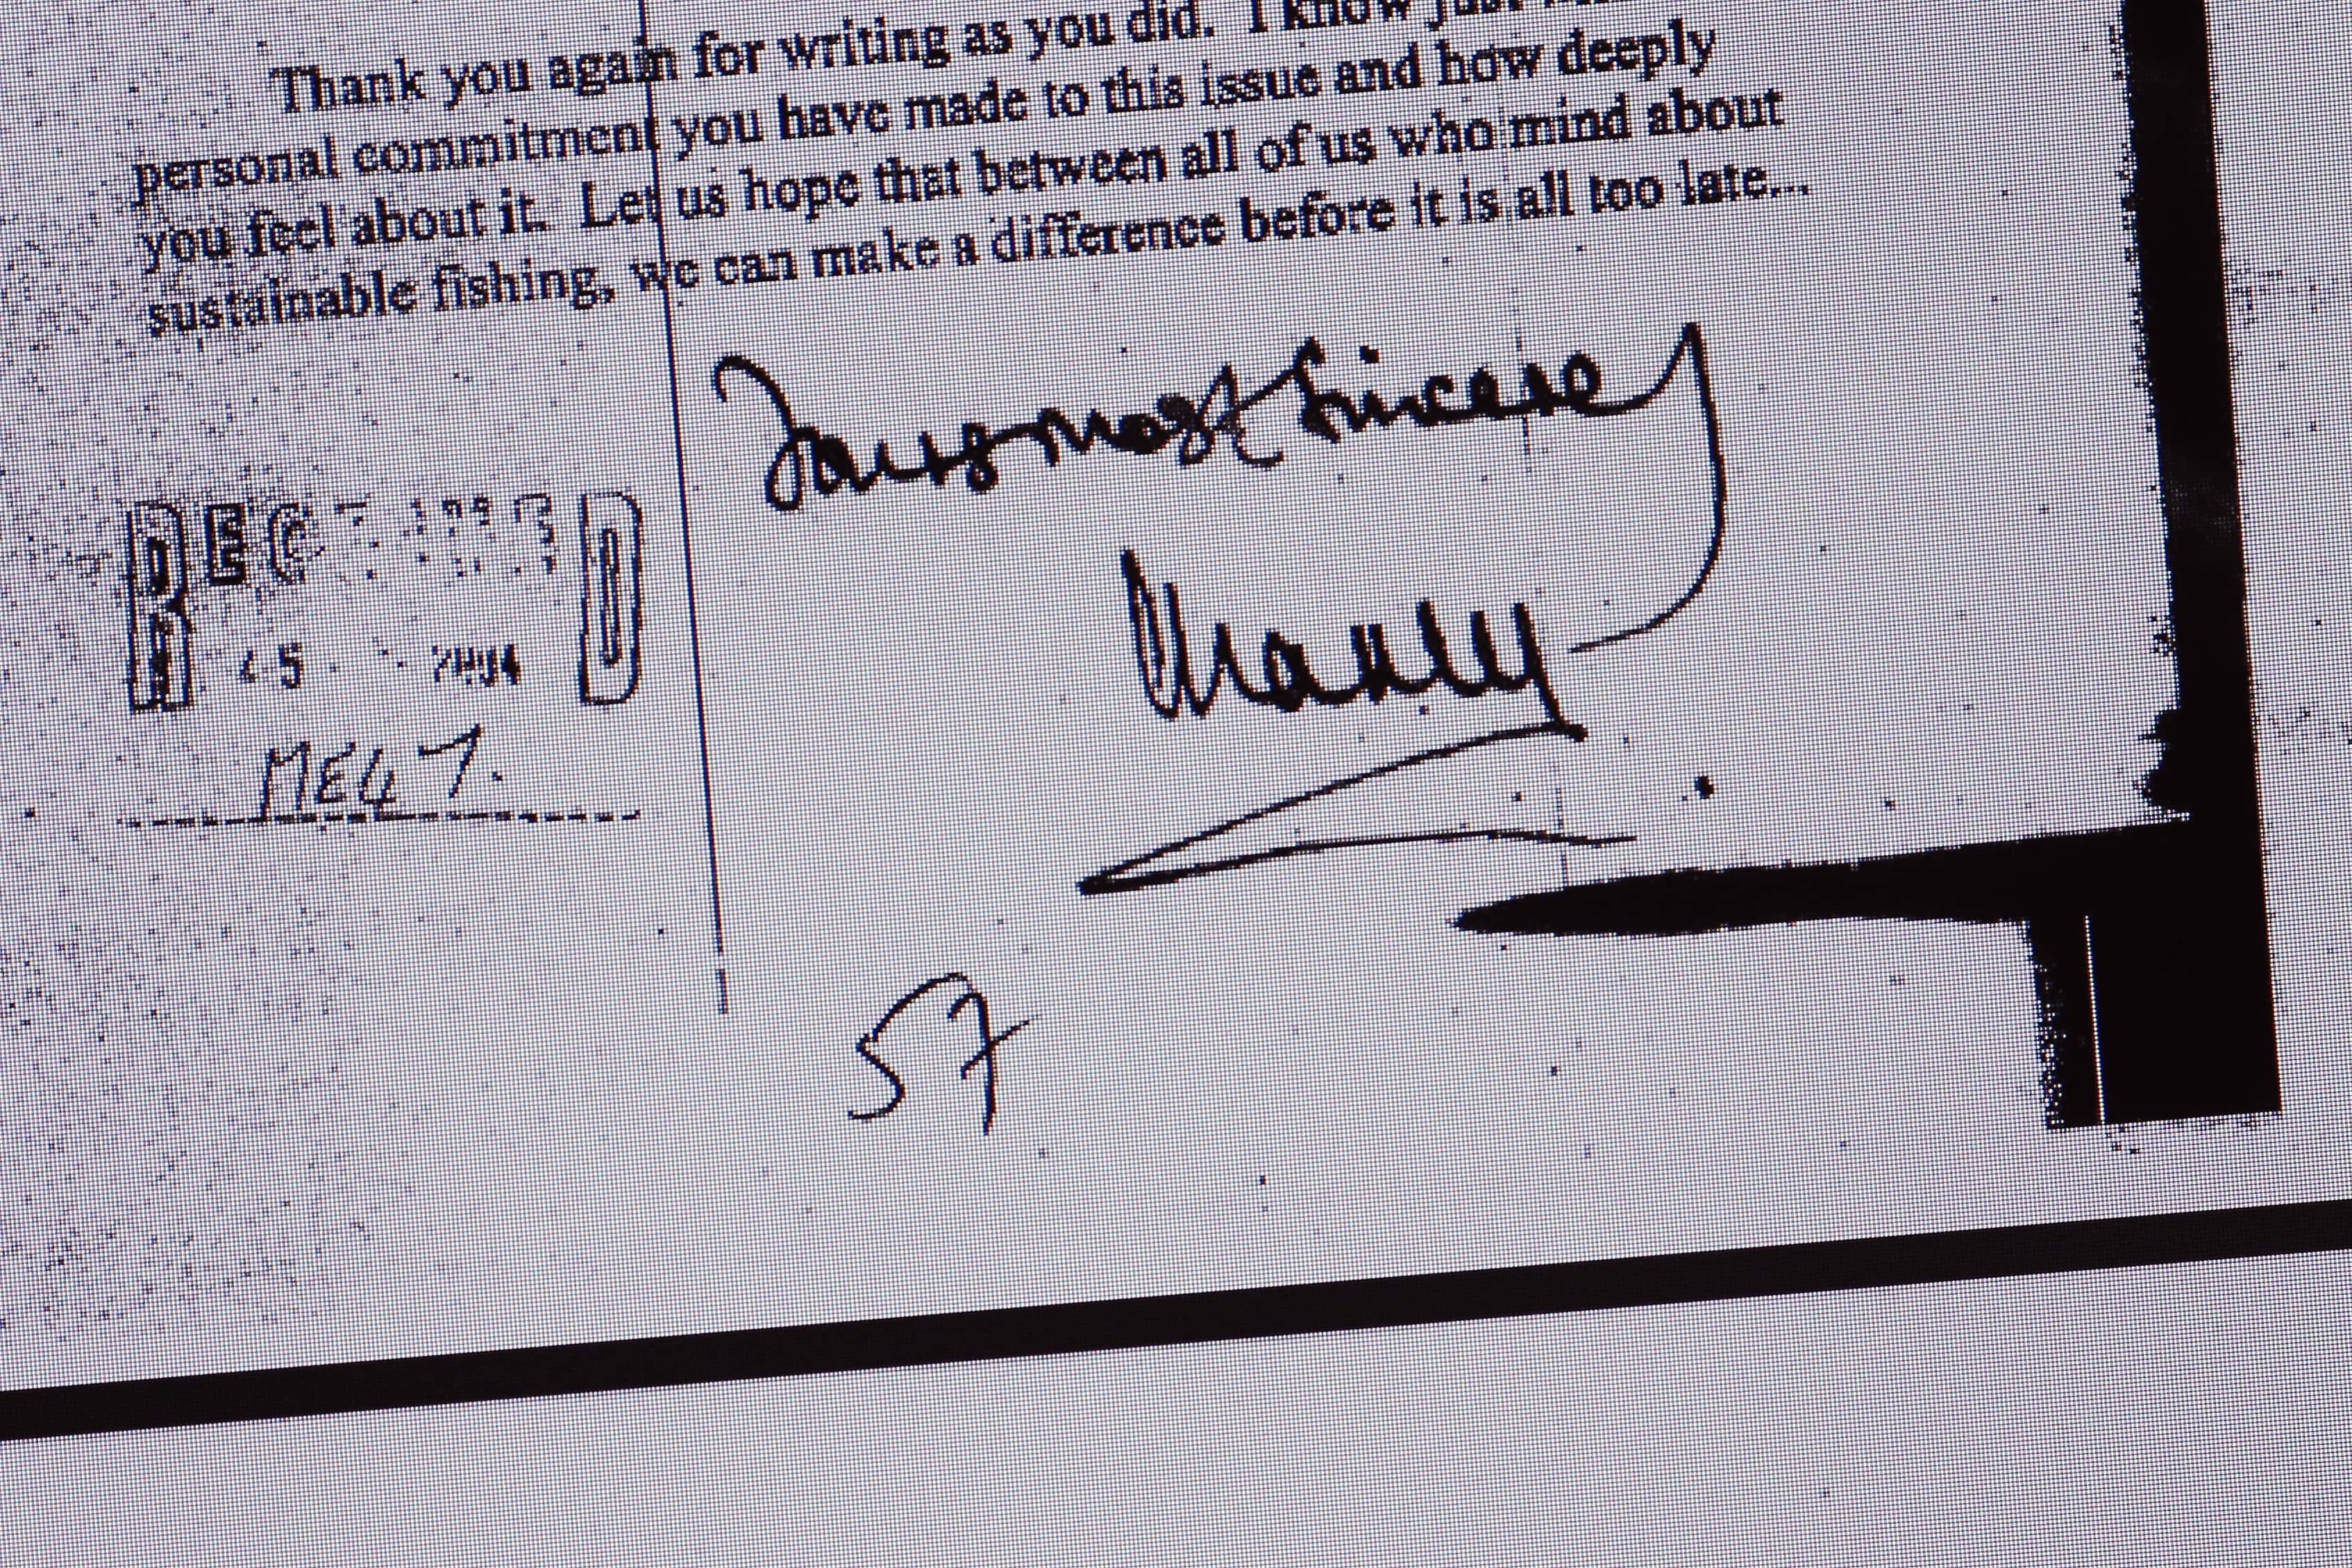 Thank you again for writing as you did. I know just
personal commitment you have made to this issue and how deeply
you feel about it. Let us hope that between all of us who mind about
sustainable fishing, we can make a difference before it is all too late...
Yours most sincerely
Charles
DEC
57